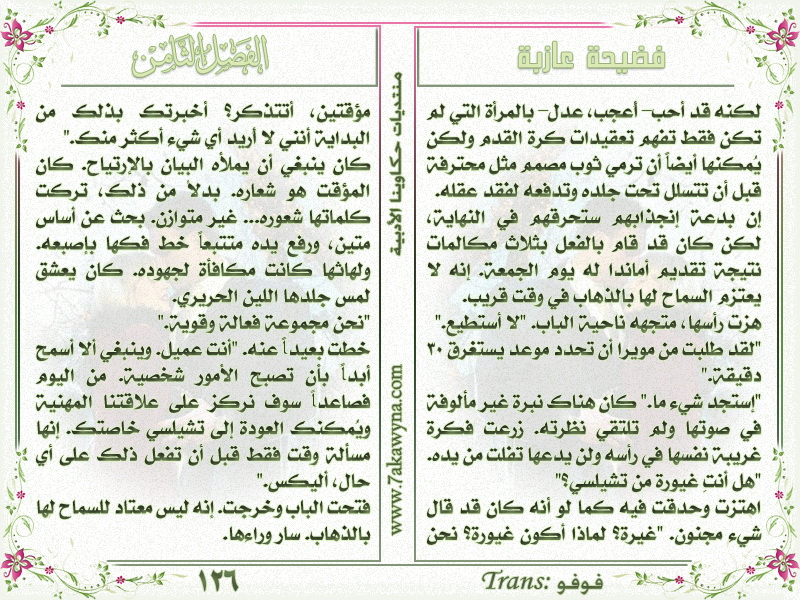 فضيحة عازبة
لكنه قد أحب– أعجب، عدل– بالمرأة التي لم
تكن فقط تفهم تعقيدات كرة القدم ولكن
يُمكنها أيضاً أن ترمي ثوب مصمم مثل محترفة
قبل أن تتسلل تحت جلده وتدفعه لنقد عقله.
إن بدعة إنجذابهم ستحرقهم في النهاية،
لكن كان قد قام بالفعل بثلاث مكالمات
نتيجة تقديم أماندا له يوم الجمعة. إنه لا
يعتزم السماح لها بالذهاب في وقت قريب.
هزت رأسها، متجهه ناحية الباب. "لا أستطيع."
"لقد طلبت من مويرا أن تحدد موعد يستغرق ٣٠
دقيقة."
"إستجد شيء ما." كان هناك نبرة غير مألوفة
في صوتها ولم تلتقي نظرته. زرعت فكرة
غريبة نفسها في رأسه ولن يدعها تفلت من يده.
"هل أنتِ غيورة من تشيلسي؟"
اهتزت وحدقت فيه كما لو أنه كان قد قال
شيء مجنون. "غيرة؟ لماذا أكون غيورة؟ نحن
الفصل الثامن
مؤقتين، أتتذكر؟ أخبرتك بذلك من
البداية أنني لا أريد أي شيء أكثر منك."
كان ينبغي أن يملأه البيان بالإرتياح. كان
المؤقت هو شعاره. بدلاً من ذلك، تركت
كلماتها شعوره... غير متوازن. بحث عن أساس
متين، ورفع يده متتبعاً خط فكها بإصبعه.
ولهاثها كانت مكافأة لجهوده. كان يعشق
لمس جلدها اللين الحريري.
"نحن مجموعة فعالة وقوية."
خطت بعيداً عنه. "أنت عميل. وينبغي ألا أسمح
أبداً بأن تصبح الأمور شخصية. من اليوم
فصاعداً سوف نركز على علاقتنا المهنية
ويُمكنك العودة إلى تشيلسي خاصتك. إنها
مسألة وقت فقط قبل أن تفعل ذلك على أي
حال، أليكس."
فتحت الباب وخرجت. إنه ليس معتاد للسماح لها
بالذهاب. سار وراءها.
منتديات حكاوينا الأدبية
www.7akawyna.com
Trans: فوفو
١٢٦